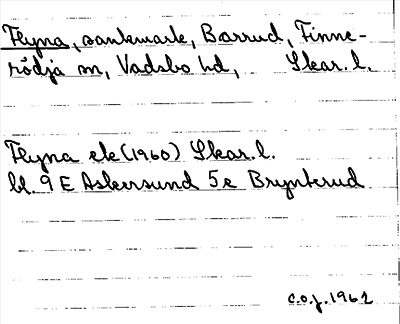 Flyna, sankmark, Barrud, Finne-
rödja sn, Vadsbo hd, Skar. l.
Flyna ek (1960) Skar. l.
bl. 9 E Askersund 5e Bryntorud
C.O.J. 1962